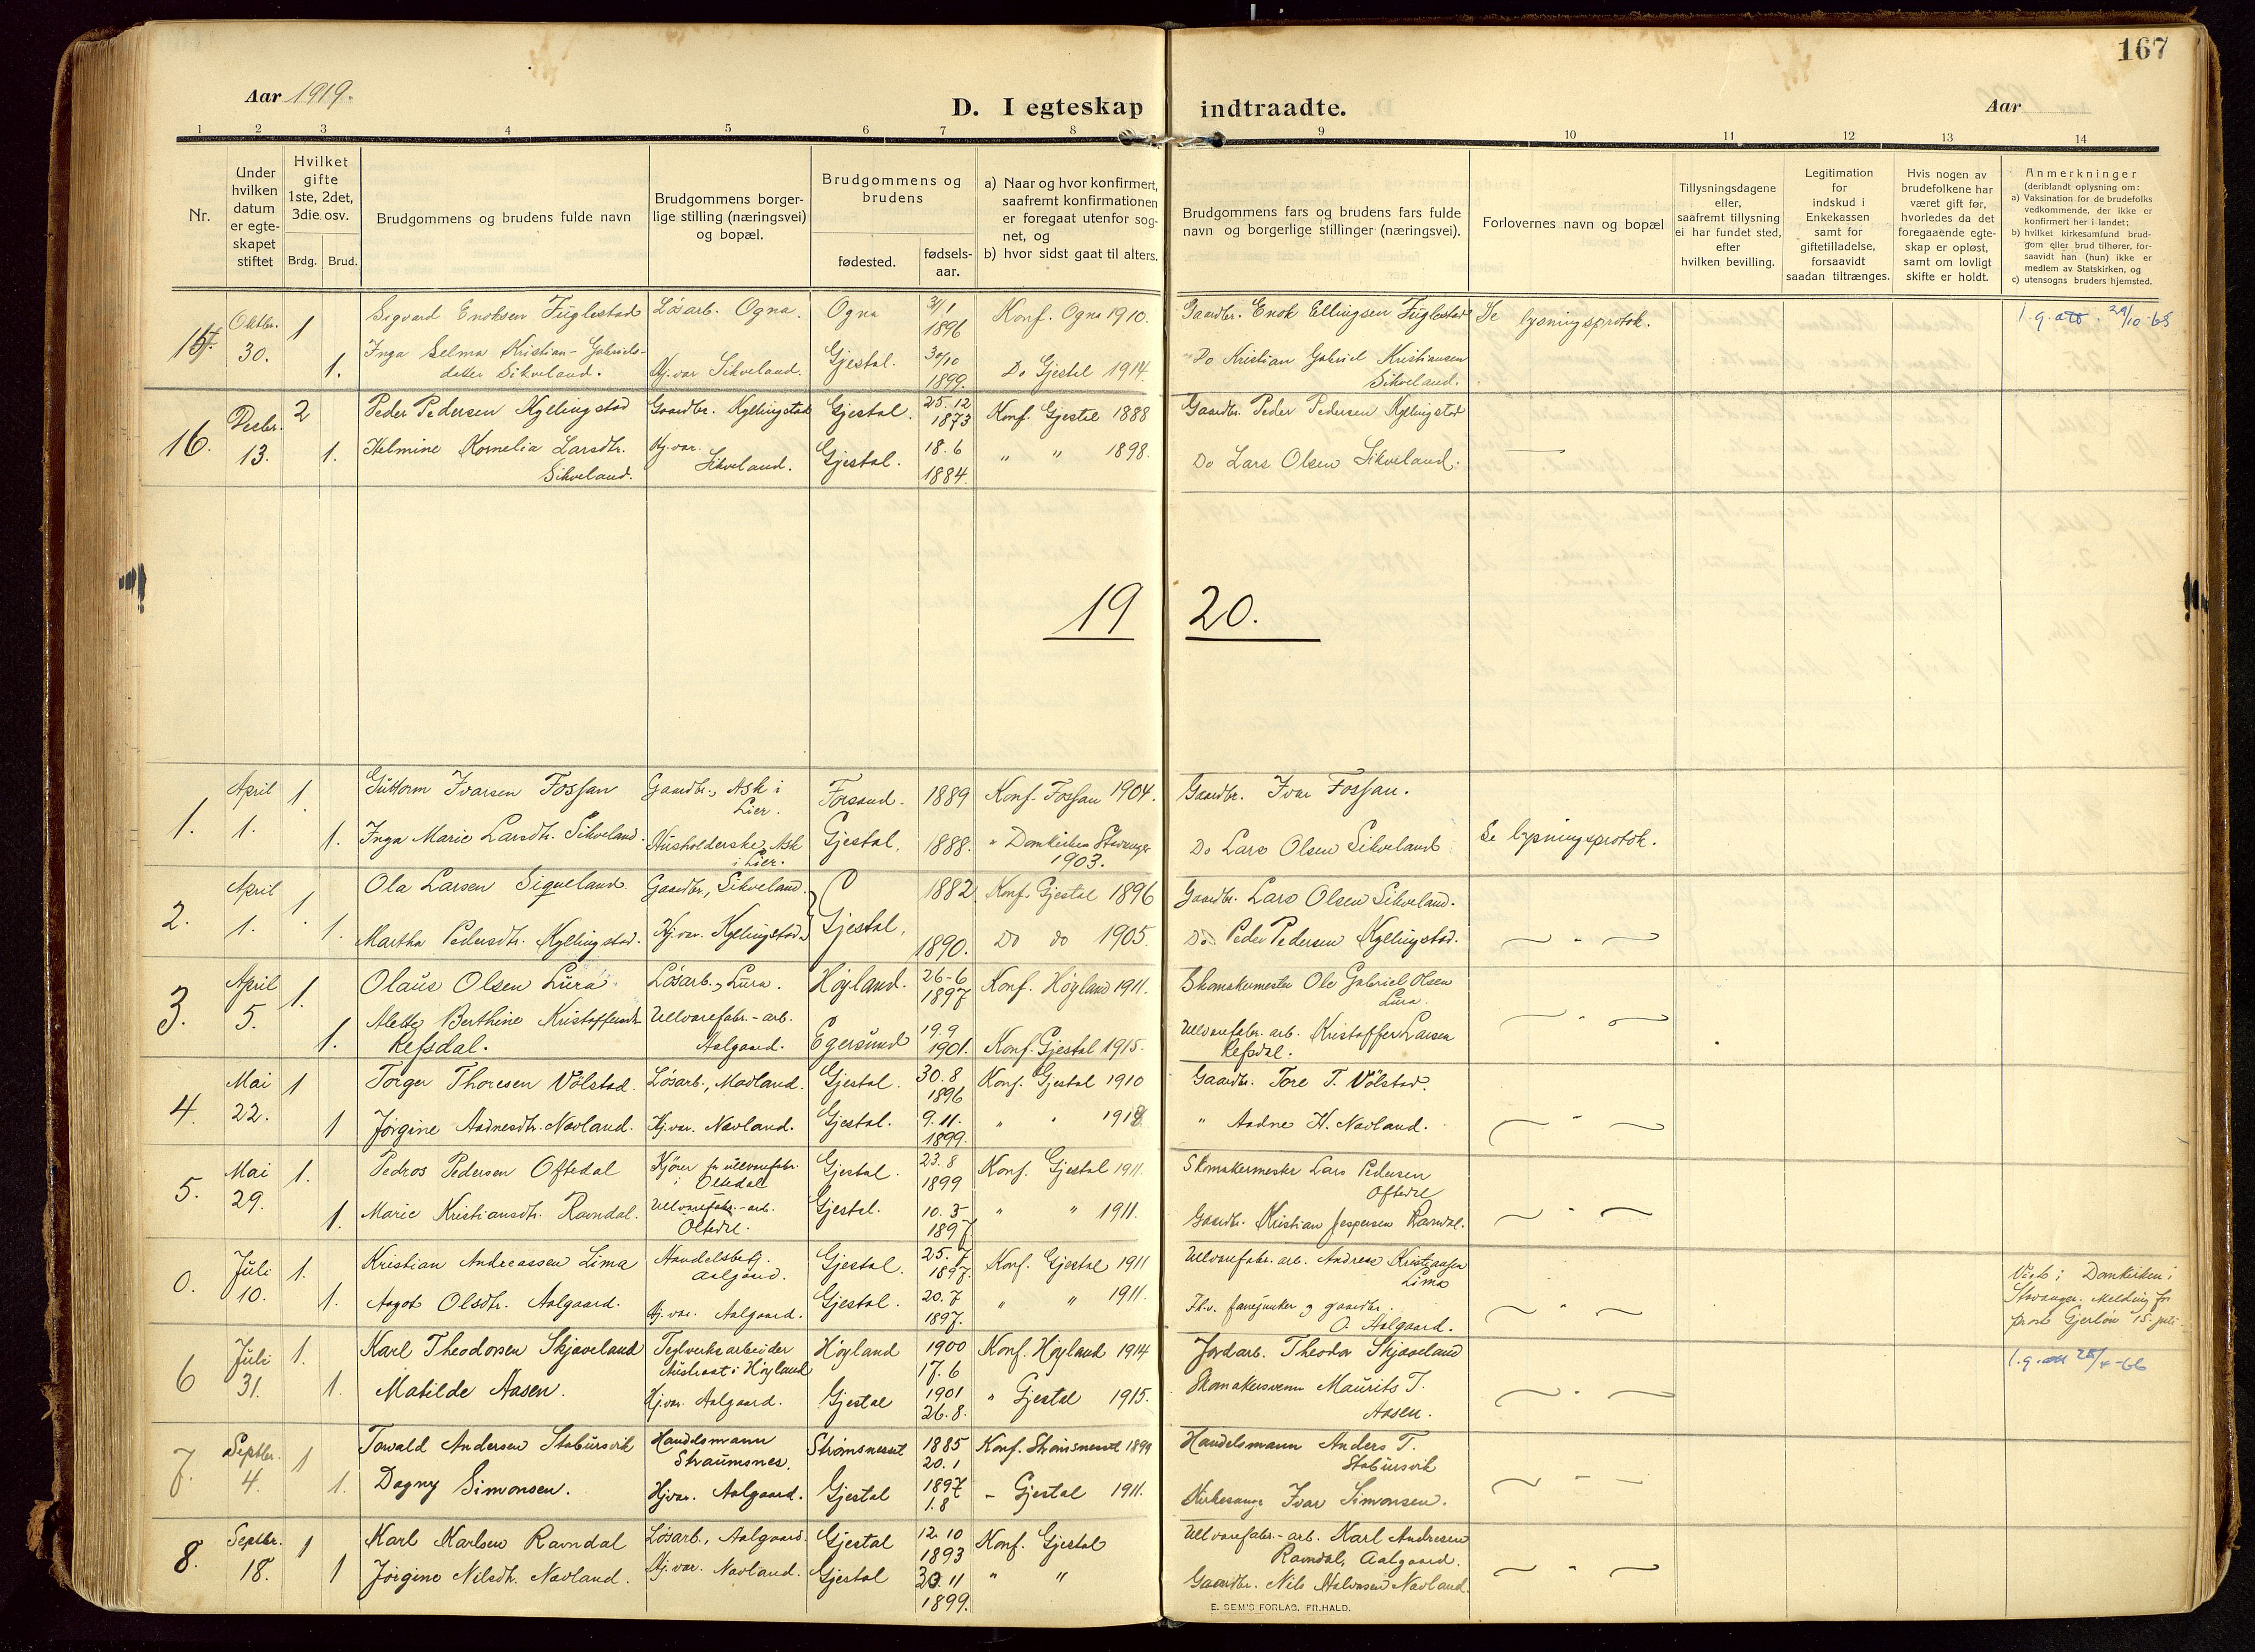 167
Aar 1919.
D. I egteskap indtraadte.
Aar
1 2 3 4 5 6 7 8 9 10 11 12 13 14
Nr.
Under
hvilken
datum
er egte-
skapet
stiftet
Hvilket
gifte
1ste, 2det,
3die osv.
Brdg. Brud.
Brudgommens og brudens fulde navn
Brudgommens borger-
lige stilling (næringsvei)
og bopæl.
Brudgommens og
brudens
fødested.
fødsels-
aar.
a) Naar og hvor konfirmert,
saafremt konfirmationen
er foregaat utenfor sog-
net, og
b) hvor sidst gaat til alters.
Brudgommens fars og brudens fars fulde
navn og borgerlige stillinger (næringsvei).
Forlovernes navn og bopæl
Tillysningsdagene
eller,
saafremt tillysning
ei har fundet sted,
efter
hvilken bevilling.
Legitimation
for
indskud i
Enkekassen
samt for
giftetilladelse,
forsaavidt
saadan tiltrænges.
Hvis nogen av
brudefolkene har
været gift før,
hvorledes da det
foregaaende egte-
skap er opløst,
samt om lovligt
skifte er holdt.
Anmerkninger
(deriblandt oplysning om:
a) Vaksination for de brudefolks
vedkommende, der ikke er
konfirmert her i landet;
b) hvilket kirkesamfund brud-
gom eller brud tilhører, for-
saavidt han (hun) ikke er
medlem av Statskirken, og
c) utensogns bruders hjemsted.
15. Oktbr. 30. 1 Sigvard Enoksen Fuglestad Løsarb. Ogna. Ogna 31/1 1896 Konf. Ogna 1910. Gaardbr. Enok Ellingsen Fuglestad Se lysningsprotok. 1.g.att. 29/10-68
1. Inga Selma Kristian-Gabriels-
datter Sikveland. Hj.var Sikveland. Gjestal. 30/10 1899. Do Gjestal 1914. Do Kristian Gabriel Kristiansen
Sikveland.
16. Decbr. 13. 2 Peder Pedersen Kyllingstad Gaardbr. Kyllingstad Gjestal. 25.12 1873 Konf. Gjestal 1888 Gaardbr. Peder Pedersen Kyllingstad
1. Helmine Kornelia Larsdtr.
Sikveland. Hj.var. Sikveland. Gjestal. 18.6 1884. " " 1898. Do Lars Olsen Sikveland.
19 20.
1. April 1. 1. Guttorm Ivarsen Fossan Gaardbr., Ask i
Lier. Forsand. 1889 Konf. Fossan 1904. Gaardbr. Ivar Fossan.
1. Inga Marie Larsdtr. Sikveland. Husholderske, Ask
i Lier. Gjestal. 1888. " Domkirken Stavanger
1903. Do Lars Olsen Sikveland Se lysningsprotok.
2. April 1. 1 Ola Larsen Siqueland Gaardbr., Sikveland. Gjestal. 1882 Konf. Gjestal 1896 Gaardbr. Lars Olsen Sikveland.
1. Martha Pedersdtr. Kyllingstad. Hj.var. Kyllingstad. 1890. Do do 1905. Do Peder Pedersen Kyllingstad. "
3. April 5. 1. Olaus Olsen Lura Løsarb., Lura. Høyland. 26-6 1897 Konf. Høyland 1911. Skomakermester Ole Gabriel Olsen
Lura.
1. Berthine
Refsdal. Ullvarefabr.-arb.
Aalgaard. Egersund 19.9 1901. Konf. Gjestal 1915. Ullvarefabr. arb. Kristoffer Larsen
Refsdal. "
4. Mai 22. 1 Torger Thoresen Vølstad. Løsarb., Madland. Gjestal. 30.8 1896 Konf. Gjestal 1910 Gaardbr. Tore T. Vølstad.
1 Jørgine Aadnesdtr. Navland. Hj.var. Navland. Gjestal. 9.11. 1899. " " " Aadne H. Navland. "
5. Mai 29. 1. Pedros Pedersen Oftedal Kjører for ullvarefabr.
i Oltedal Gjestal. 23.8 1899 Konf. Gjestal 1911. Skomakermester Lars Pedersen
Oftedal
1. Marie Kristiansdtr. Ravndal. Ullvarefabr.-arb.
Oltedal. Gjestal. 10.3 1897 " " 1911. Gaardbr. Kristian Jespersen Ravndal. "
0. Juli 10. 1. Kristian Andreassen Lima Handelsbetj.
Aalgaard. Gjestal. 25.7 1897. Konf. Gjestal 1911 Ullvarefabr. arb. Andreas Kristiansen
Lima Viet i Domkirken i
Stavanger. Melding fra
prost Gjerløw 15. juli.
1. Aagot Olsdtr. Aalgaard. Hj.var. Aalgaard. Gjestal. 20.7 1897. " " 1911. Fh.v. fanejunker og gaardbr.
O. Aalgaard. "
6 Juli 31. 1. Karl Theodorsen Skjæveland Teglverksarbeider
Austraat i Høyland Høyland 1900 17.6 Konf. Høyland 1914 Jordarb. Theodor Skjæveland 1.g.att 28/4-66
1. Matilde Aasen. Hj.var. Aalgaard. Gjestal 1901 26.8. " Gjestal 1915. Skomakersvenn Maurits T.
Aasen. "
7. Septbr. 4. 1 Torvald Andersen Stabursvik Handelsmann
Straumsnes. Strømsneset 1885 20.1 Konf. Strømsneset 1899 Handelsmann Anders T.
Stabursvik
1. Dagny Simonsen. Hj.var. Aalgaard. Gjestal 1897 1.8 - Gjestal 1911. Kirkesanger Ivar Simonsen.
8. Septbr. 18. 1 Karl Karlsen Ravndal Løsarb., Aalgaard. Gjestal 12.10 1893 Konf. Gjestal Ullvarefabr.-arb. Karl Andresen
Ravndal, Aalgaard.
1 Jørgine Nilsdtr. Navland. Hj.var. Navland. Gjestal 20.11 1899. " " Gaardbr. Nils Halvorsen Navland. "
E. SEM'S FORLAG, FR.HALD.